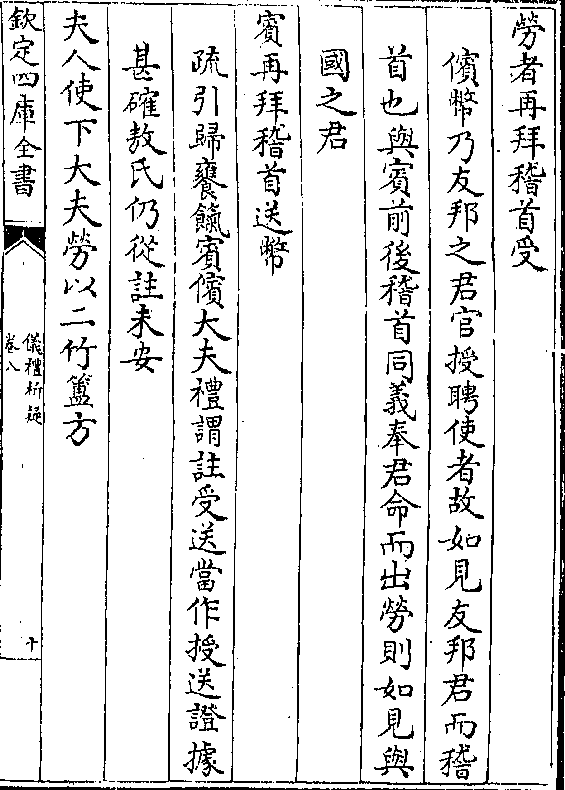 勞者再拜稽首受
儐幣乃友邦之君官授聘使者故如見友邦君而稽
首也與賓前後稽首同義奉君命而出勞則如見與
國之君
賓再拜稽首送幣
疏引歸饔餼賓儐大夫禮謂註受送當作授送證據
甚確敖氏仍從註未安
夫人使下大夫勞以二竹簠方
欽定四庫全書
儀禮析疑
卷八
十